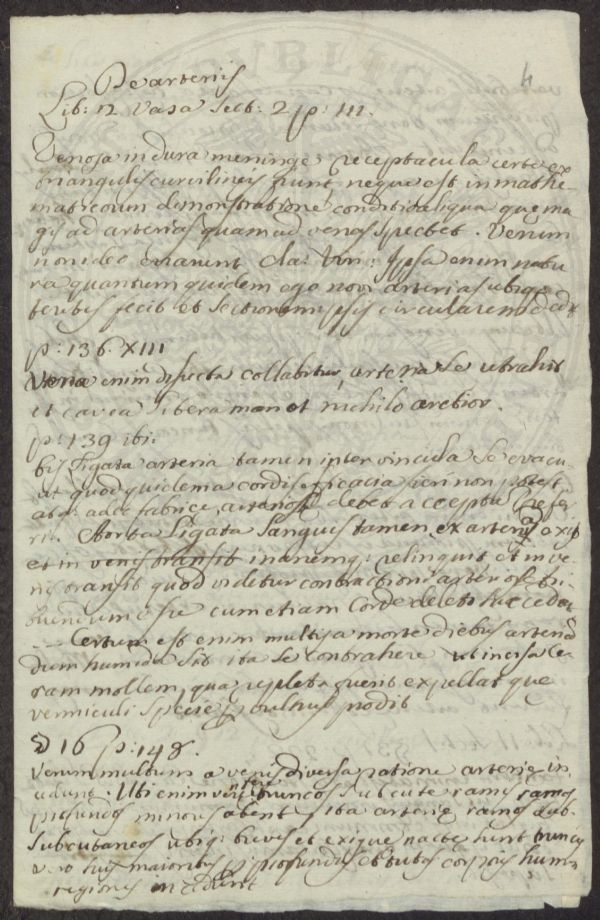 4
De arteriis
Lib: 12 Vasa Sect: 2 p: 111.
Venosa in dura meninge receptacula certe ex
triangulis curvilineis sunt, neque est in mathe
maticorum demonstratione condita aliqua que ma
gis ad arterias quam ad venas spectet. Verum
non ideo erraverit Cla: Vir: Ipsa enim natu
ra quantum quidem ego novi arterias ubiq:
teretes fecit et sectionem ipsis circularem dedit
p: 136. XIII
Vena enim dissecta collabitur, arteria se retrahit
et cavea libera manet nichilo arctior.
p: 139 ibi:
bis ligata arteria tamen inter vincula se evacu
at quod quidem a cordis efficacia fieri non potest
debet accepta
Aorta ligata sanguis tamen ex arteriis exit
et in venas transit inanemq: relinquit et in ve
nas transit quod videtur contractioni arter
buendum esse cum etiam corde deleto succedat
Certum est enim multis a morte diebus arteria
dum humida sit ita se contrahere ut incisa ce
ram mollem, qua repleta fuerit expellat que
vermiculi specie prodit
p: 148.
Verum multum a venis diversa ratione arterie in
cedunt. Ubi enim truncos sub cute ramos
profundos minores abent, ita arterie ramos sub
subcutaneos ubiq: breves et exigue nacte sunt truncis
vero suis maioribus profundis corporis humani
regiones incedunt